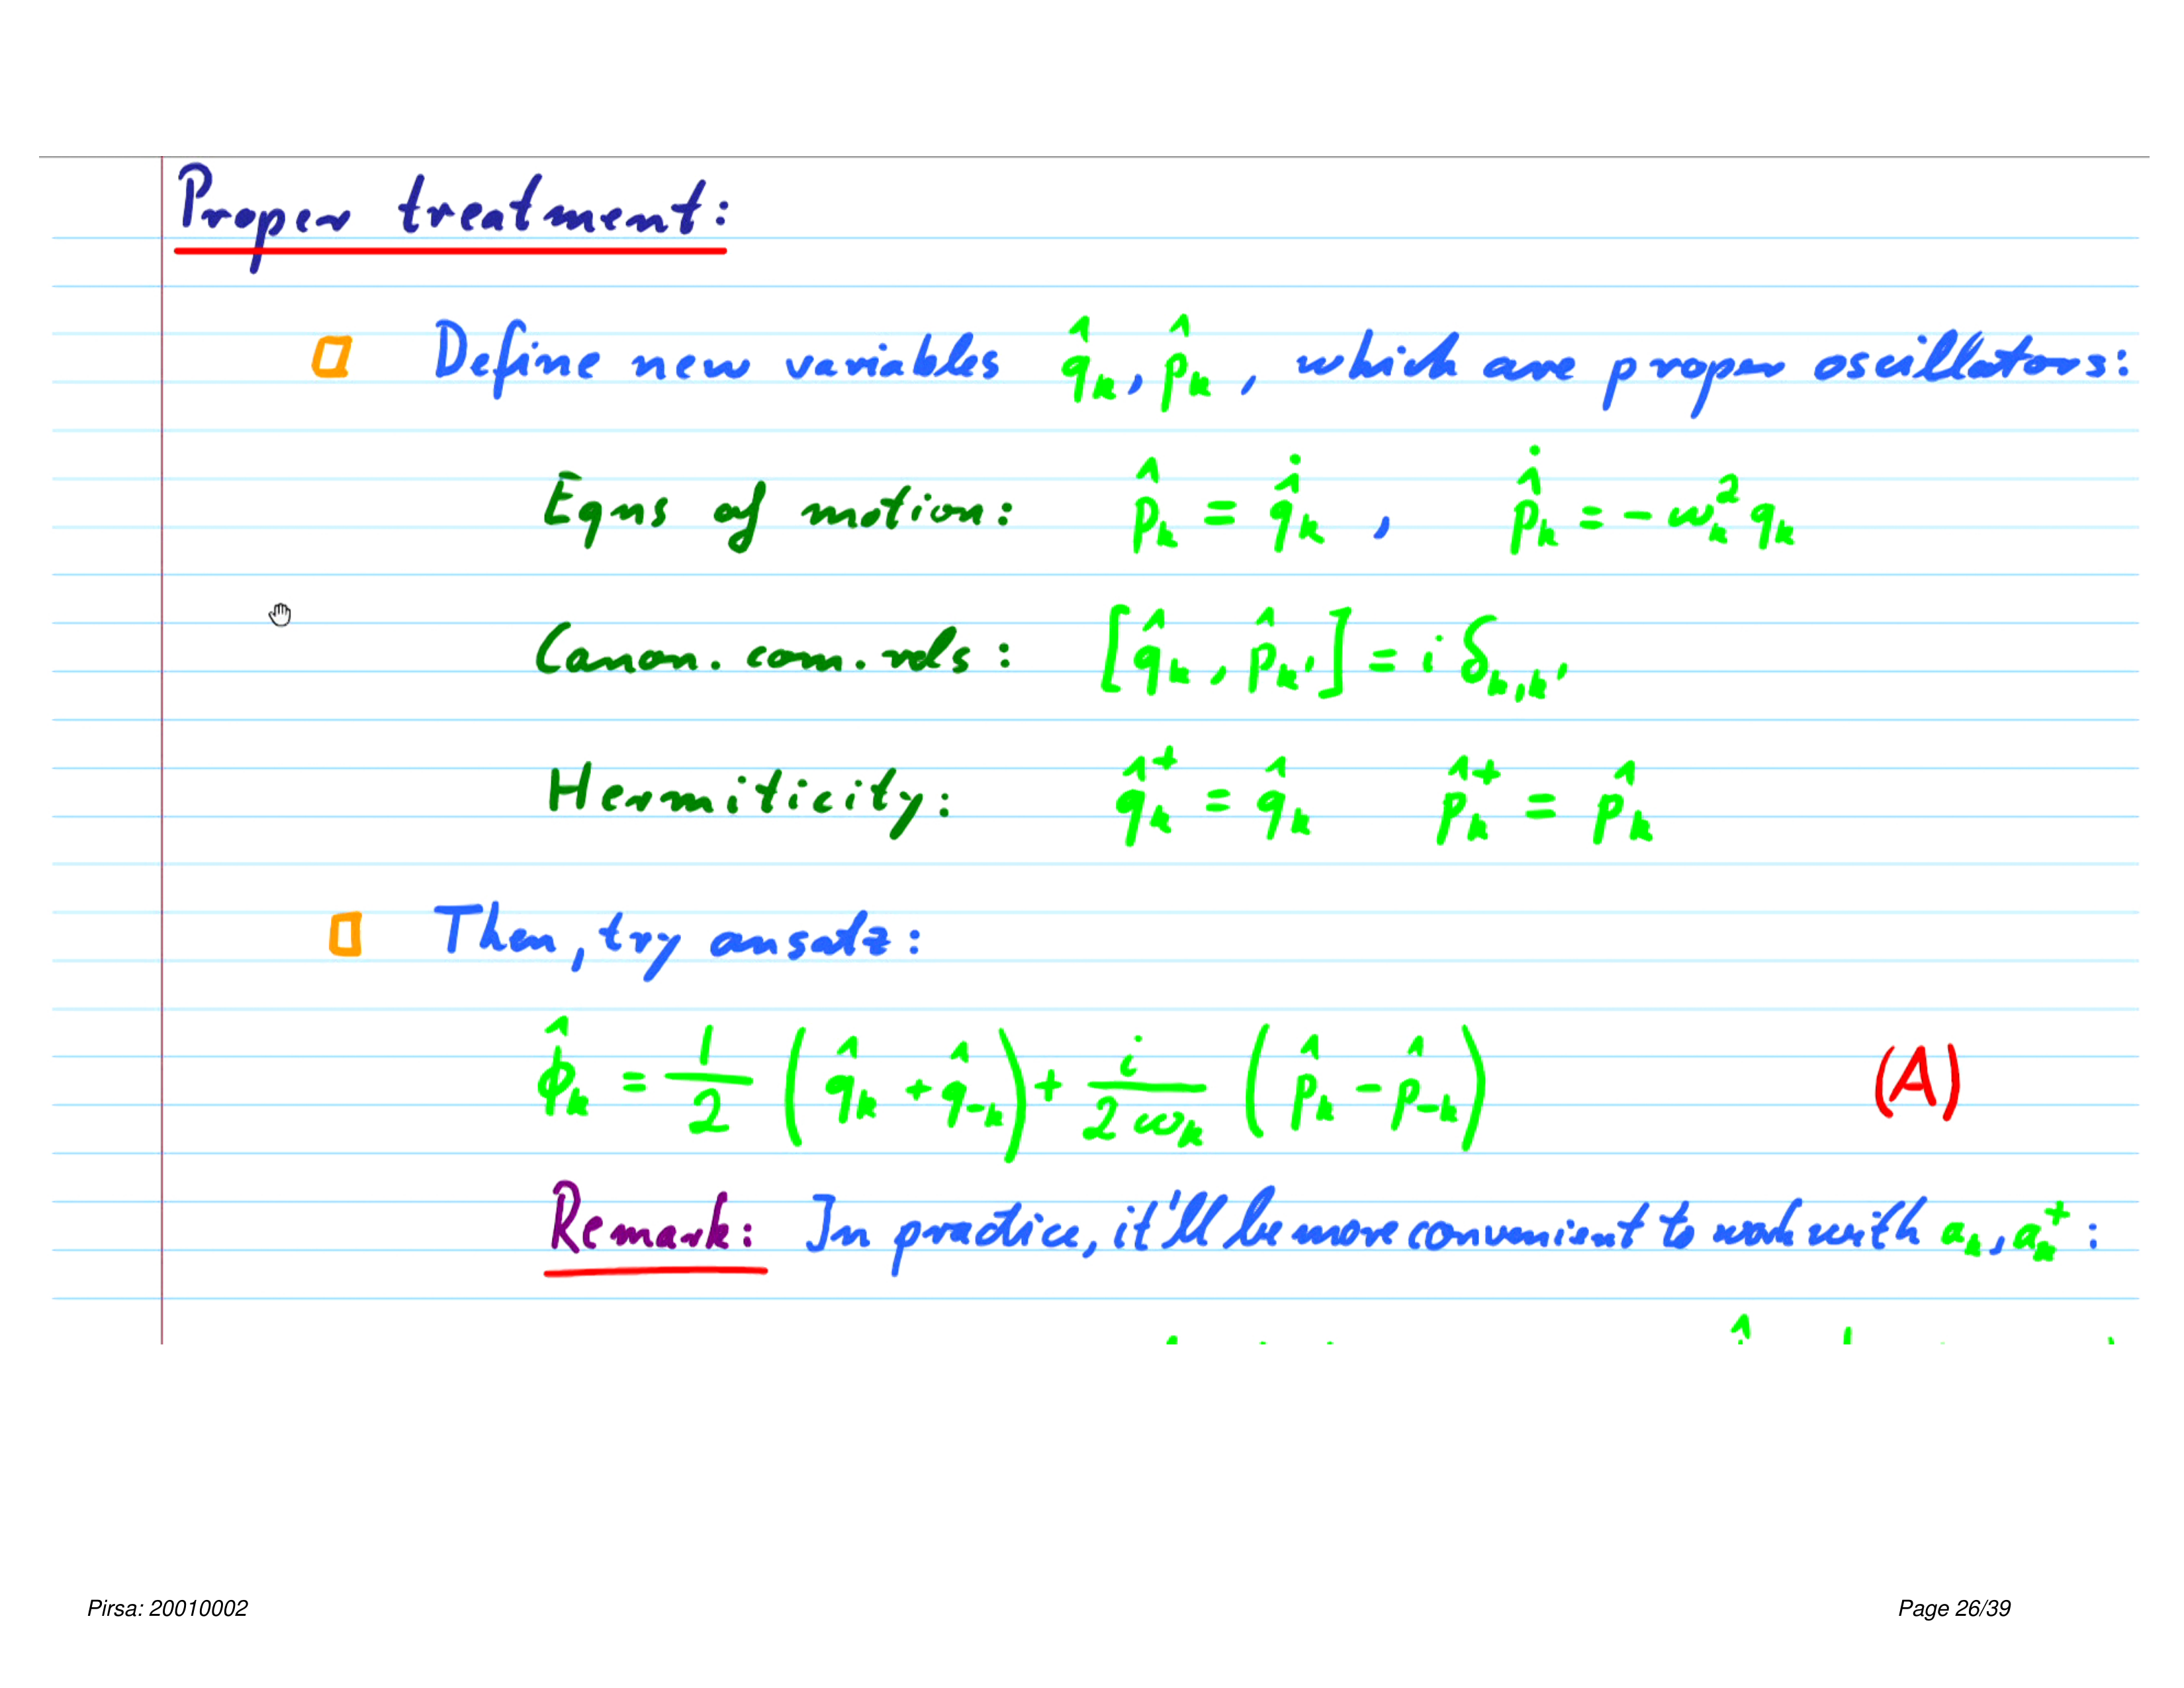 Proper treatment:
Define new variables q̂ₖ, p̂ₖ, which are proper oscillators:
Eqns of motion: $\hat{p}_k = \dot{\hat{q}}_k$ , $\dot{\hat{p}}_k = -\omega_k^2 \hat{q}_k$
Canon. com. rels: $[\hat{q}_k, \hat{p}_{k'}] = i\delta_{k,k'}$
Hermiticity: $\hat{q}_k^+ = \hat{q}_k$ $\hat{p}_k^+ = \hat{p}_k$
Then, try ansatz:
$\hat{\phi}_k = \frac{1}{2}(\hat{q}_k + \hat{q}_{-k}) + \frac{i}{2\omega_k}(\hat{p}_k - \hat{p}_{-k})$ (A)
Remark: In practice, it'll be more convenient to work with $a_k, a_k^+$:
Pirsa: 20010002
Page 26/39